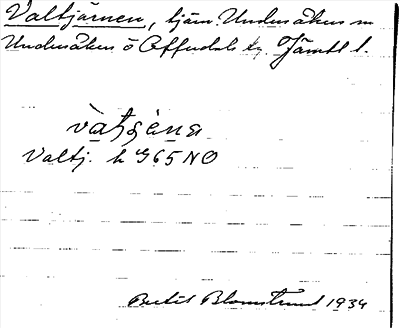 Valtjärnen, tjärn. Undersåkers sn
Undersåkers o Offerdals tg. Jämtl l.
Valtj. h G65 NO
Bertil Blomstrand 1934